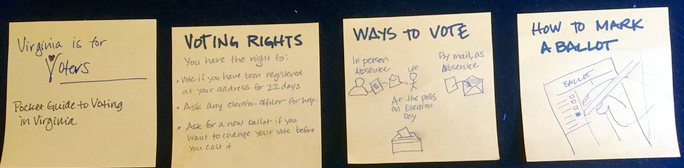 Virginia is for
Voters
Pocket Guide to Voting
in Virginia
VOTING RIGHTS
You have the right to:
• Vote if you have been registered
at your address for 22 days
• Ask any election officer for help.
• Ask for a new ballot if you
want to change your vote before
you cast it
WAYS TO VOTE
In person
Absentee
By mail, as
Absentee
At the polls
on Election
Day
HOW TO MARK
A BALLOT
BALLOT